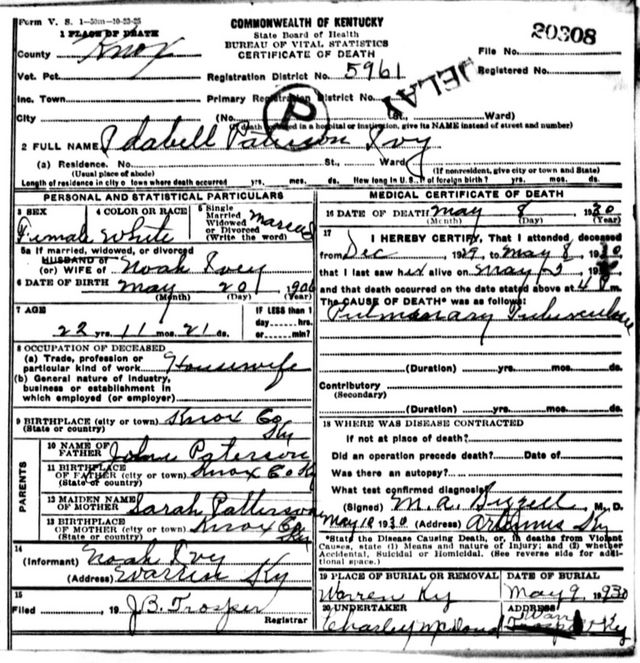 Form V. S. 1-50m-10-23-25
1 PLACE OF DEATH
County Knox
Vot. Pct.
Inc. Town
City
COMMONWEALTH OF KENTUCKY
State Board of Health
BUREAU OF VITAL STATISTICS
CERTIFICATE OF DEATH
Registration District No. 5961
Primary Registration District No.
(No. St., Ward)
(If death occurred in a hospital or institution, give its NAME instead of street and number)
20308
File No.
Registered No.
DELAY
P
2 FULL NAME Idabell Paterson Ivy
(a) Residence. No. St., Ward
(Usual place of abode) (If nonresident, give city or town and State)
Length of residence in city or town where death occurred yrs. mos. ds. How long in U. S., if of foreign birth? yrs. mos. ds.
PERSONAL AND STATISTICAL PARTICULARS
3 SEX Female
4 COLOR OR RACE White
5 Single Married Widowed or Divorced (Write the word) Married
5a If married, widowed, or divorced
HUSBAND of
(or) WIFE of Noah Ivey
6 DATE OF BIRTH May 20 1906
(Month) (Day) (Year)
7 AGE 22 yrs. 11 mos. 21 ds.
IF LESS than 1 day hrs. or min?
8 OCCUPATION OF DECEASED
(a) Trade, profession or particular kind of work Housewife
(b) General nature of industry, business or establishment in which employed (or employer)
9 BIRTHPLACE (city or town) Knox Co
(State or country) Ky
PARENTS
10 NAME OF FATHER John Paterson
11 BIRTHPLACE OF FATHER (city or town) Knox Co Ky
(State or country)
12 MAIDEN NAME OF MOTHER Sarah Patterson
13 BIRTHPLACE OF MOTHER (city or town) Knox Co
(State or country) Ky
14 (Informant) Noah Ivy
(Address) Warren Ky
15 Filed 19 J.B. Trosper
Registrar
MEDICAL CERTIFICATE OF DEATH
16 DATE OF DEATH May 8 1930
(Month) (Day) (Year)
17 I HEREBY CERTIFY, That I attended deceased
from Dec 1929 to May 8 1930
that I last saw her alive on May 2 19
and that death occurred on the date stated above at 4 m.
The CAUSE OF DEATH* was as follows:
Pulmonary Tuberculosis
(Duration) yrs. mos. ds.
Contributory
(Secondary)
(Duration) yrs. mos. ds.
18 WHERE WAS DISEASE CONTRACTED
If not at place of death?
Did an operation precede death? Date of
Was there an autopsy?
What test confirmed diagnosis?
(Signed) M. D.
May 10 1930 (Address) Artemus Ky
*State the Disease Causing Death, or, in deaths from Violent Causes, state (1) Means and nature of Injury; and (2) whether Accidental, Suicidal or Homicidal. (See reverse side for additional space.)
19 PLACE OF BURIAL OR REMOVAL
Warren Ky
DATE OF BURIAL
May 9, 1930
20 UNDERTAKER
Charley
ADDRESS
Warren Ky